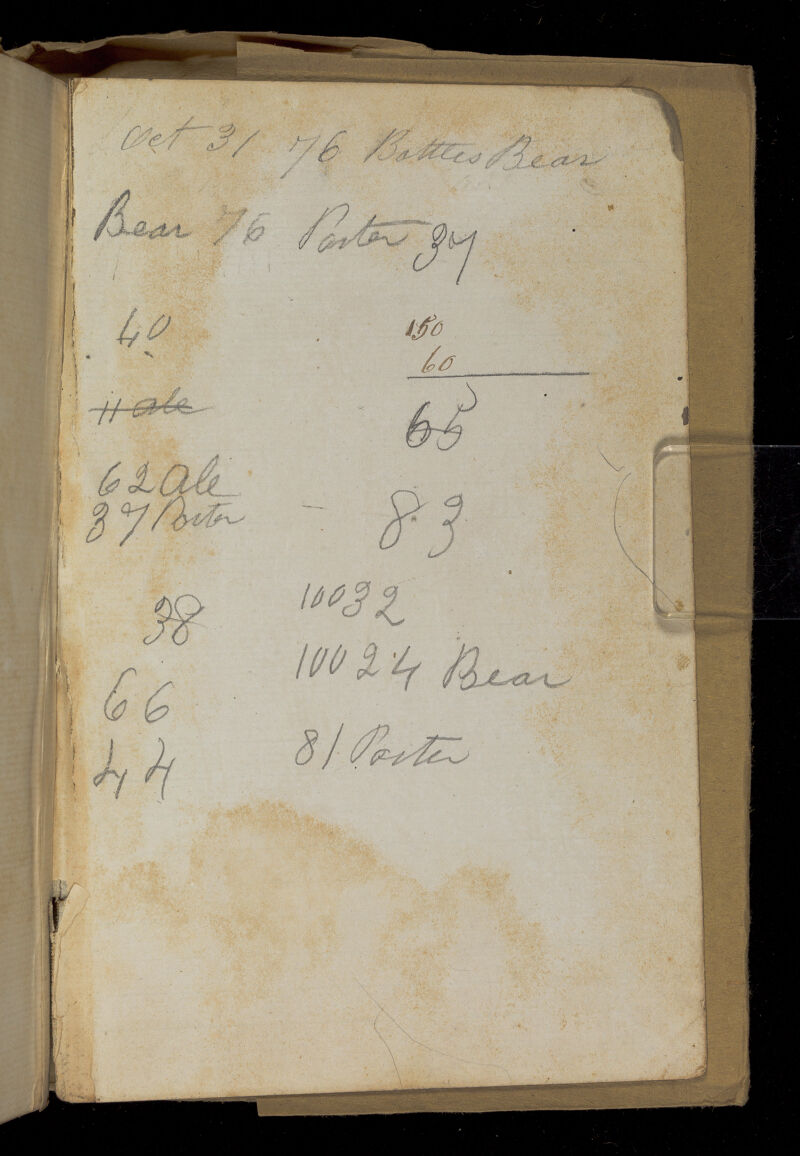 Oct 31 76 Bottles Bear
Bear 76 Porter 37
40
150
60
11 ale
65
62 Ale
37 Porter
83
38
10032
66
10024 Bear
44
81 Porter